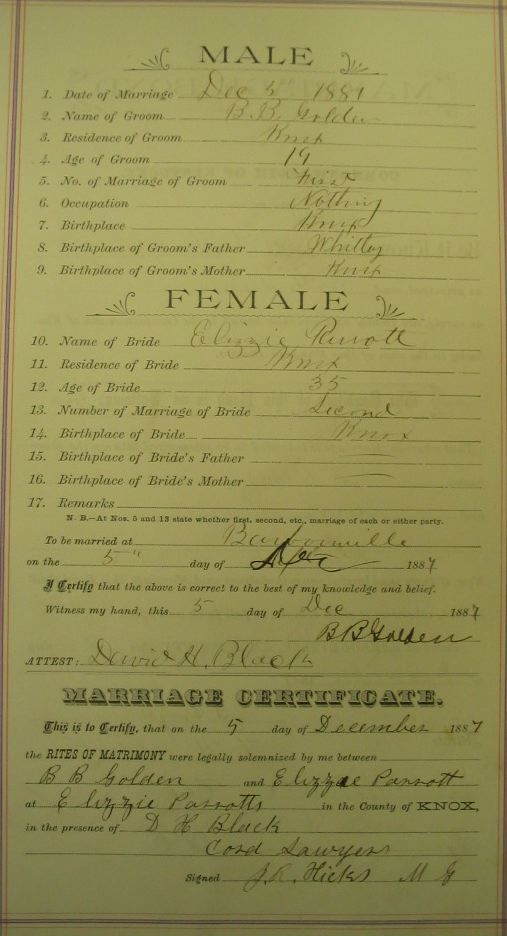 MALE
1. Date of Marriage Dec 5 1887
2. Name of Groom B. B. Golden
3. Residence of Groom Knox
4. Age of Groom 19
5. No. of Marriage of Groom First
6. Occupation Nothing
7. Birthplace Knox
8. Birthplace of Groom's Father Whitley
9. Birthplace of Groom's Mother Knox
FEMALE
10. Name of Bride Elizzie
11. Residence of Bride Knox
12. Age of Bride 35
13. Number of Marriage of Bride Second
14. Birthplace of Bride Knox
15. Birthplace of Bride's Father
16. Birthplace of Bride's Mother
17. Remarks
N. B.—At Nos. 5 and 13 state whether first, second, etc., marriage of each or either party.
To be married at Barbourville
on the 5" day of Dec 1887
I Certify that the above is correct to the best of my knowledge and belief.
Witness my hand, this 5 day of Dec 1887
B B Golden
ATTEST: David H. Black
MARRIAGE CERTIFICATE.
This is to Certify, that on the 5 day of December 1887
the RITES OF MATRIMONY were legally solemnized by me between
B B Golden and Elizzie Parrott
at Elizzie Parrotts in the County of KNOX,
in the presence of D H Black
Cord Sawyers
Signed J. R. Hicks M G